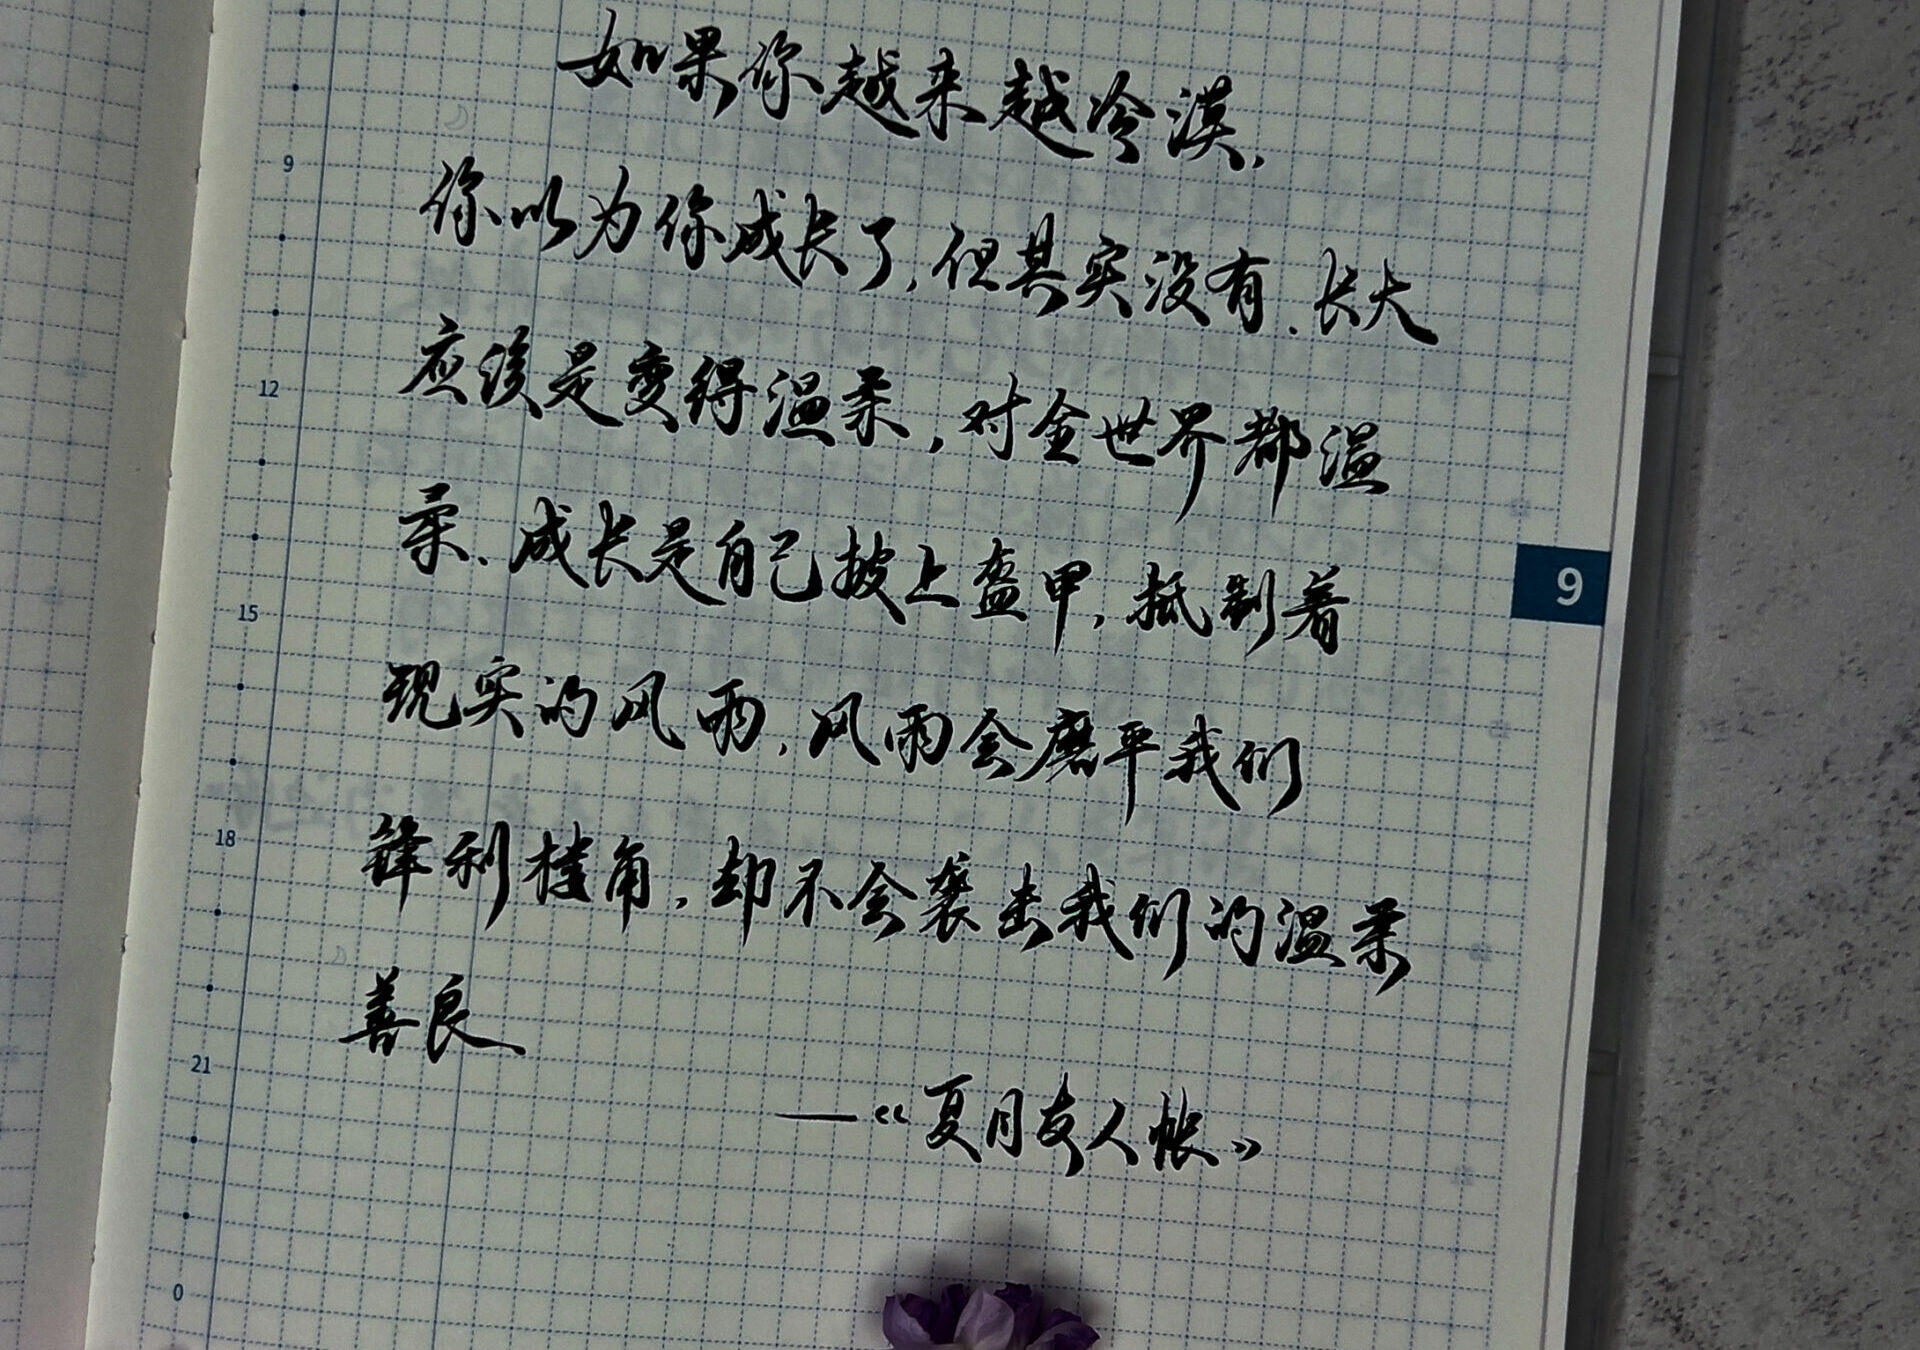 如果你越来越冷漠，
9
你以为你成长了，但其实没有．长大
12
应该是变得温柔，对全世界都温
柔．成长是自己披上盔甲，抵制着
9
15
现实的风雨，风雨会磨平我们
18
锋利棱角，却不会袭击我们的温柔
善良
21
—《夏目友人帐》
0